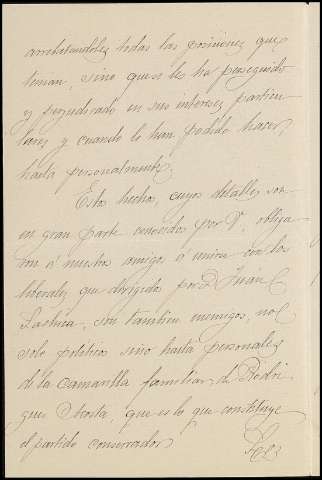 arrebatandoles todas las posiciones que
tenian, sino que se les ha perseguido
y perjudicado en sus intereses particu
lares y cuando lo han podido hacer,
hasta personalmente.
Estos hechos, cuyos detalles son
en gran parte conocidos por V, obliga
ron á nuestros amigos á unirse con los
liberales que dirigidos por D. Juan
Lastria, son tambien enemigos, no
solo politicos sino hasta personales
de la camarilla familiar de Rodri
guez Acosta, que es lo que constituye
el partido conservador.